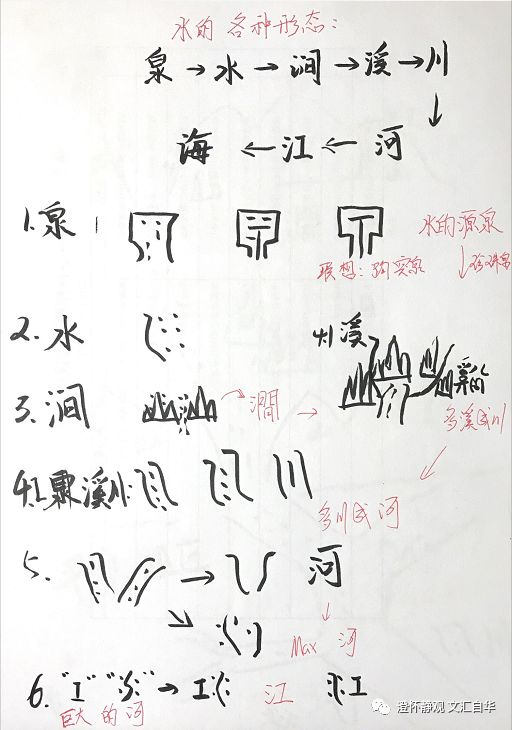 水的各种形态：
泉→水→涧→溪→川
↓
海←江←河
1.泉
水的源泉
联想：趵突泉
↓珍珠泉
2.水
4.溪
3.涧
→澗→
多溪成川
溪川：
多川成河
5.
→
河
↓
Max 河
6."工""
→
江
巨大的河
澄怀静观 文汇自华